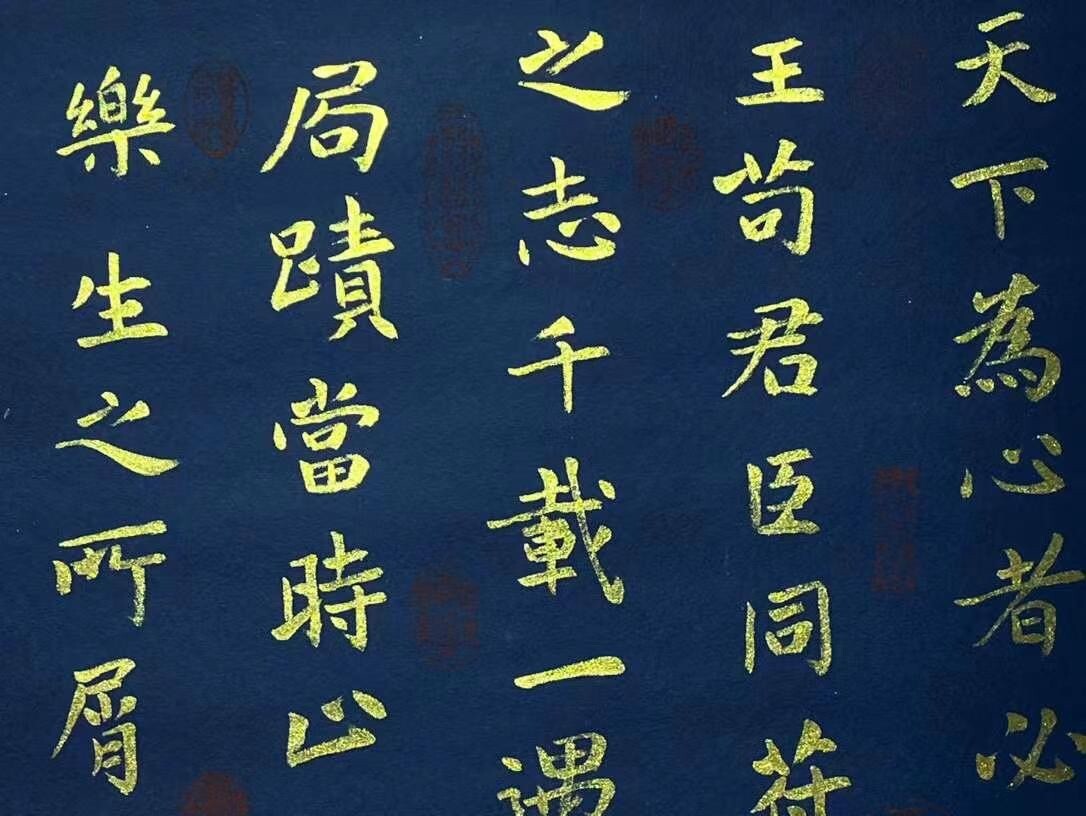 天下為心者必
王苟君臣同符
之志千載一遇
局蹟當時止
樂生之所屑